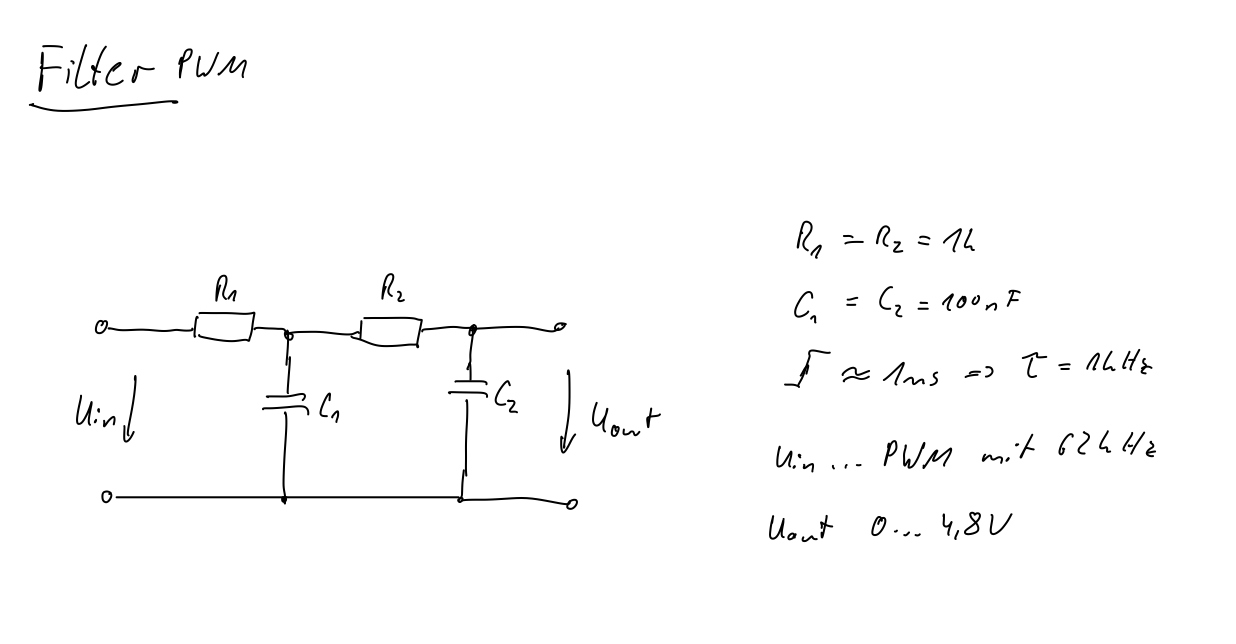 Filter PWM
R1 R2
Uin C1 C2 Uout
R1 = R2 = 1k
C1 = C2 = 100nF
≈ 1ms => τ = 1kHz
Uin ... PWM mit 62kHz
Uout 0... 4,8V